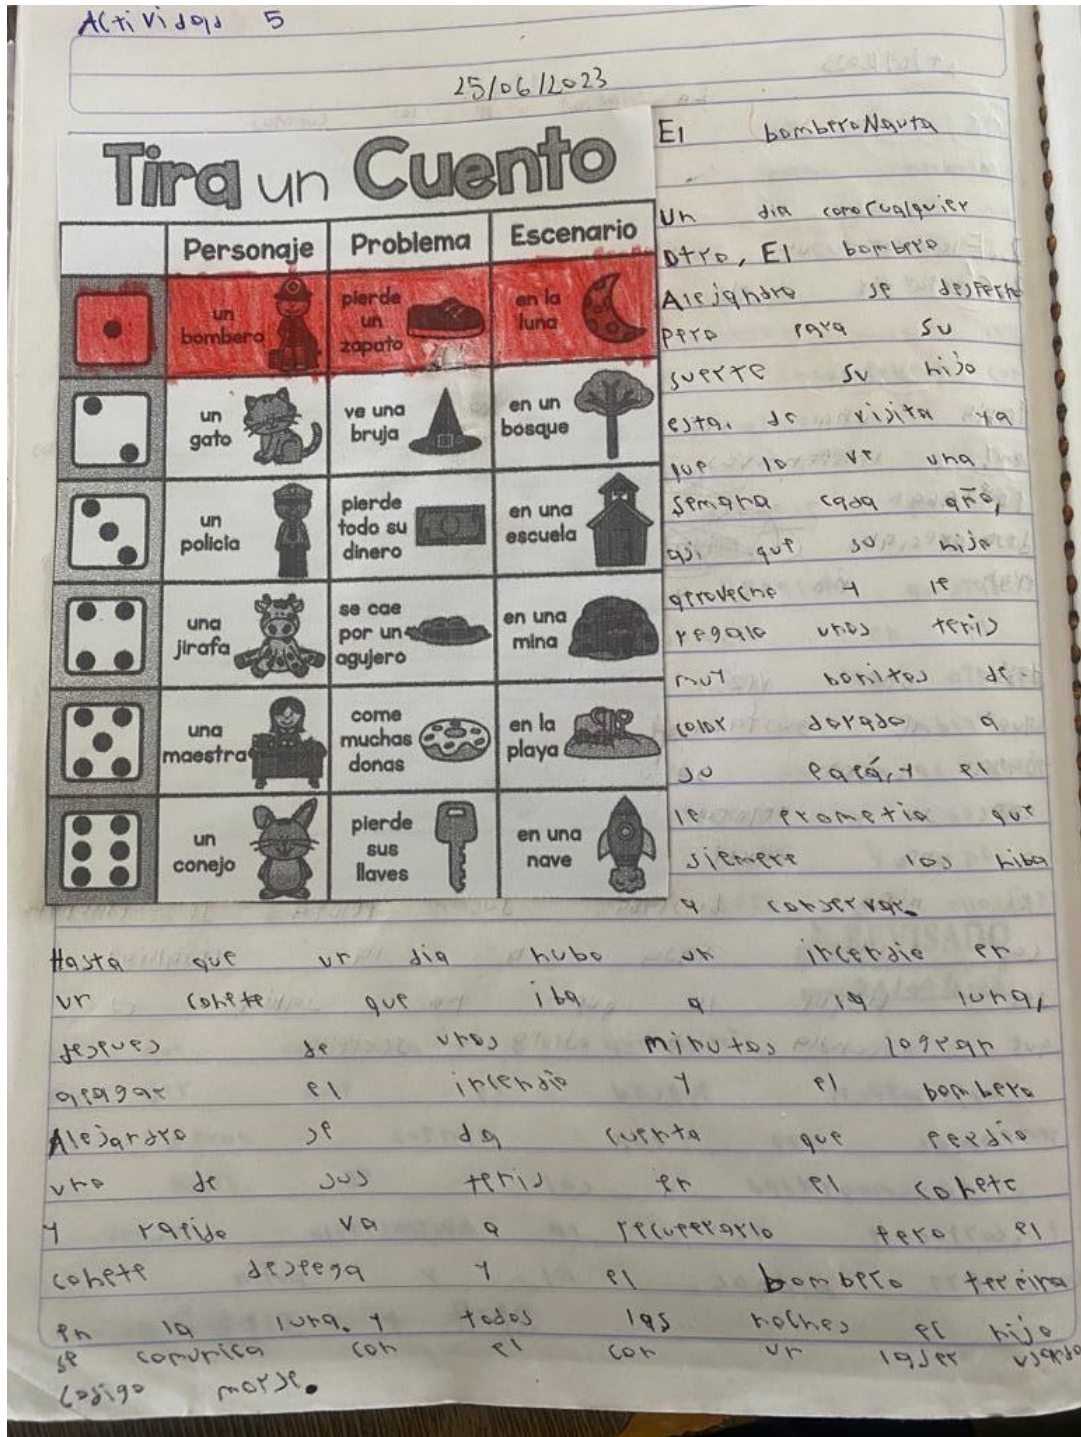 Actividad 5
25/06/2023
Tira un Cuento
Personaje Problema Escenario
un bombero pierde un zapato en la luna
un gato ve una bruja en un bosque
un policia pierde todo su dinero en una escuela
una jirafa se cae por un agujero en una mina
una maestra come muchas donas en la playa
un conejo pierde sus llaves en una nave
El bomberoNauta
Un dia como cualquier
otro, El bombero
Alejandro se desperto
pero para su
suerte su hijo
esta. de visita ya
que lo ve una
semana cada año,
asi que su hijo
aproveche y le
regalo unos tenis
muy bonitos de
color dorado a
su papá, y el
le prometio que
siempre los hiba
a conservar.
Hasta que un dia hubo un incendio en
un cohete que iba a la luna,
despues de unos minutos logran
apagar el incendio y el bombero
Alejandro se da cuenta que perdio
uno de sus tenis en el cohete
y rapido va a recuperarlo pero el
cohete despega y el bombero termina
en la luna. y todos las noches el hijo
se comunica con el con un laser usando
codigo morse.